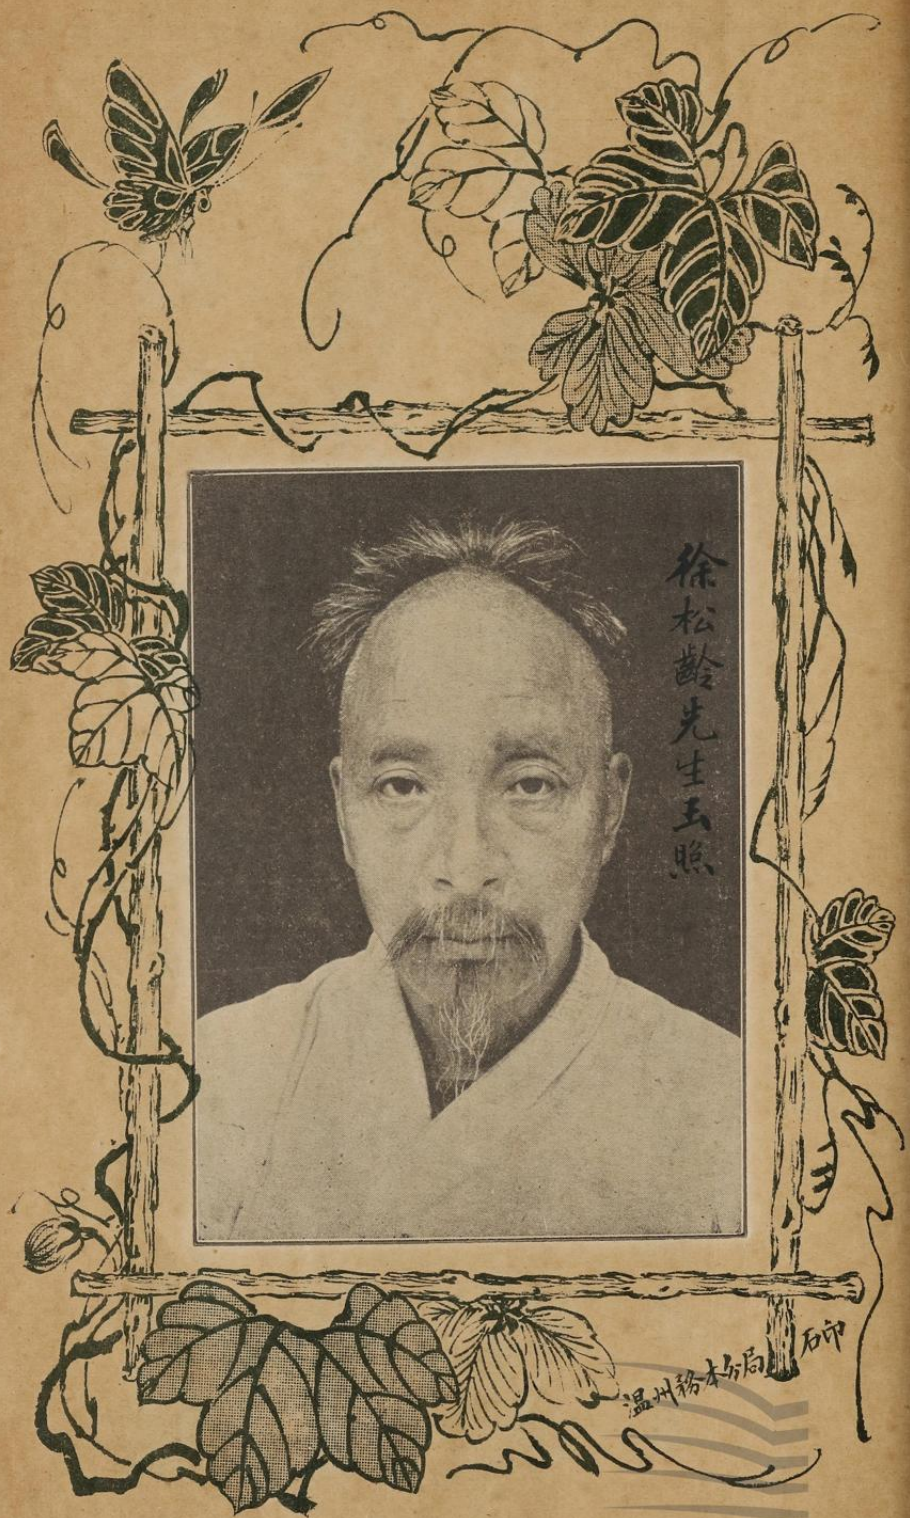 徐松齡先生玉照
温州務本分局石印